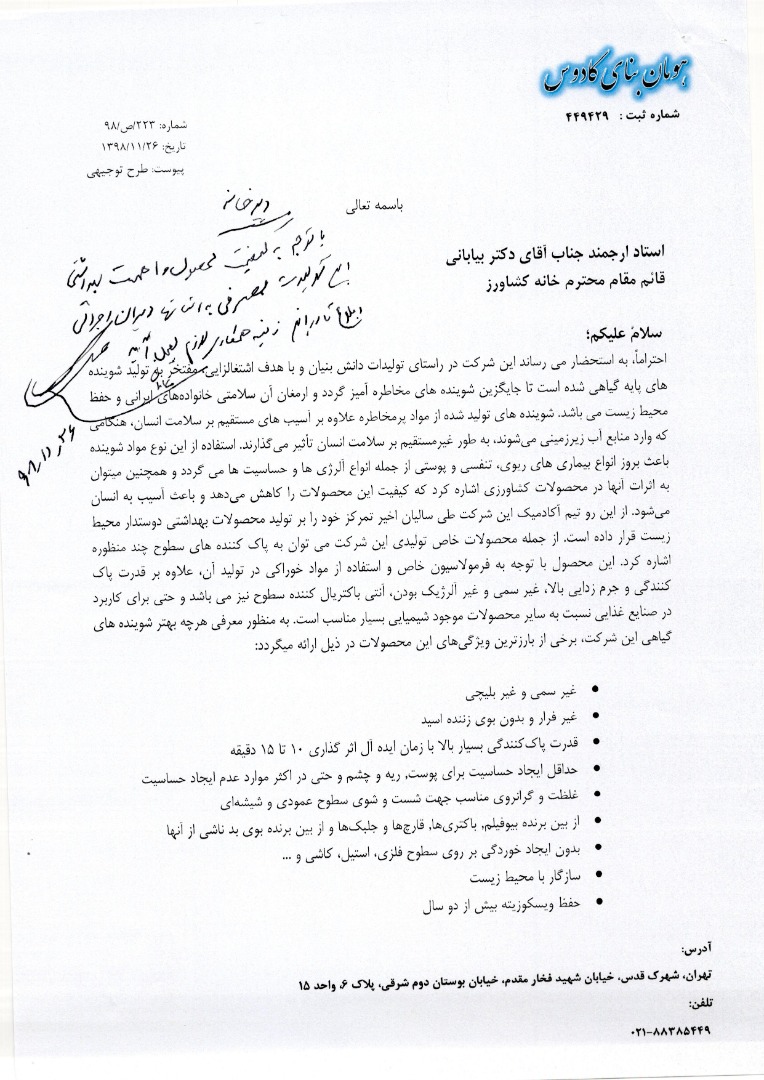 هومان بنای کادوس
شماره ثبت : ۴۴۹۴۲۹
شماره: ۲۲۳/ص/۹۸
تاریخ: ۱۳۹۸/۱۱/۲۶
پیوست: طرح توجیهی
باسمه تعالی
دبیرخانه
با توجه به کیفیت محصول و اهمیت بهداشتی
لازم بعمل آید
۹۸/۱۱/۲۶
استاد ارجمند جناب آقای دکتر بیابانی
قائم مقام محترم خانه کشاورز
سلامٌ علیکم؛
احتراماً، به استحضار می رساند این شرکت در راستای تولیدات دانش بنیان و با هدف اشتغالزایی مفتخر به تولید شوینده
های پایه گیاهی شده است تا جایگزین شوینده های مخاطره آمیز گردد و ارمغان آن سلامتی خانواده‌های ایرانی و حفظ
محیط زیست می باشد. شوینده های تولید شده از مواد پرمخاطره علاوه بر آسیب های مستقیم بر سلامت انسان، هنگامی
که وارد منابع آب زیرزمینی می‌شوند، به طور غیرمستقیم بر سلامت انسان تأثیر می‌گذارند. استفاده از این نوع مواد شوینده
باعث بروز انواع بیماری های ریوی، تنفسی و پوستی از جمله انواع آلرژی ها و حساسیت ها می گردد و همچنین میتوان
به اثرات آنها در محصولات کشاورزی اشاره کرد که کیفیت این محصولات را کاهش می‌دهد و باعث آسیب به انسان
می‌شود. از این رو تیم آکادمیک این شرکت طی سالیان اخیر تمرکز خود را بر تولید محصولات بهداشتی دوستدار محیط
زیست قرار داده است. از جمله محصولات خاص تولیدی این شرکت می توان به پاک کننده های سطوح چند منظوره
اشاره کرد. این محصول با توجه به فرمولاسیون خاص و استفاده از مواد خوراکی در تولید آن، علاوه بر قدرت پاک
کنندگی و جرم زدایی بالا، غیر سمی و غیر آلرژیک بودن، آنتی باکتریال کننده سطوح نیز می باشد و حتی برای کاربرد
در صنایع غذایی نسبت به سایر محصولات موجود شیمیایی بسیار مناسب است. به منظور معرفی هرچه بهتر شوینده های
گیاهی این شرکت، برخی از بارزترین ویژگی‌های این محصولات در ذیل ارائه میگردد:
• غیر سمی و غیر بلیچی
• غیر فرار و بدون بوی زننده اسید
• قدرت پاک‌کنندگی بسیار بالا با زمان ایده آل اثر گذاری ۱۰ تا ۱۵ دقیقه
• حداقل ایجاد حساسیت برای پوست, ریه و چشم و حتی در اکثر موارد عدم ایجاد حساسیت
• غلظت و گرانروی مناسب جهت شست و شوی سطوح عمودی و شیشه‌ای
• از بین برنده بیوفیلم, باکتری‌ها, قارچ‌ها و جلبک‌ها و از بین برنده بوی بد ناشی از آنها
• بدون ایجاد خوردگی بر روی سطوح فلزی، استیل، کاشی و ...
• سازگار با محیط زیست
• حفظ ویسکوزیته بیش از دو سال
آدرس:
تهران، شهرک قدس، خیابان شهید فخار مقدم، خیابان بوستان دوم شرقی، پلاک ۶، واحد ۱۵
تلفن:
۰۲۱-۸۸۳۸۵۴۴۹